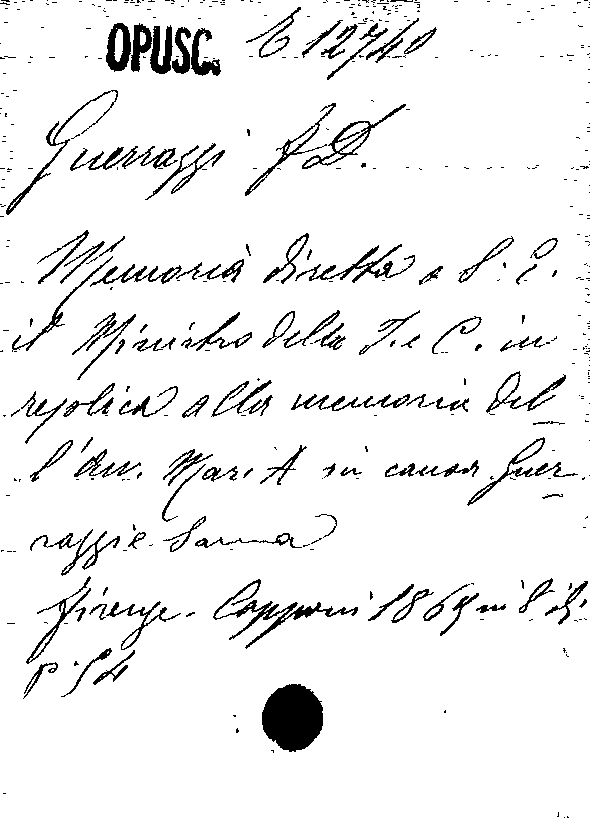 OPUSC. E 12740
Guerrazzi F D.
Memoria diretta a S. E.
il Ministro della I. e C. in
replica alla memoria del
l'Avv. Mari A in causa Guer
razzi e Sanna
Firenze. Capponi 1869 in 8 di
p. 54